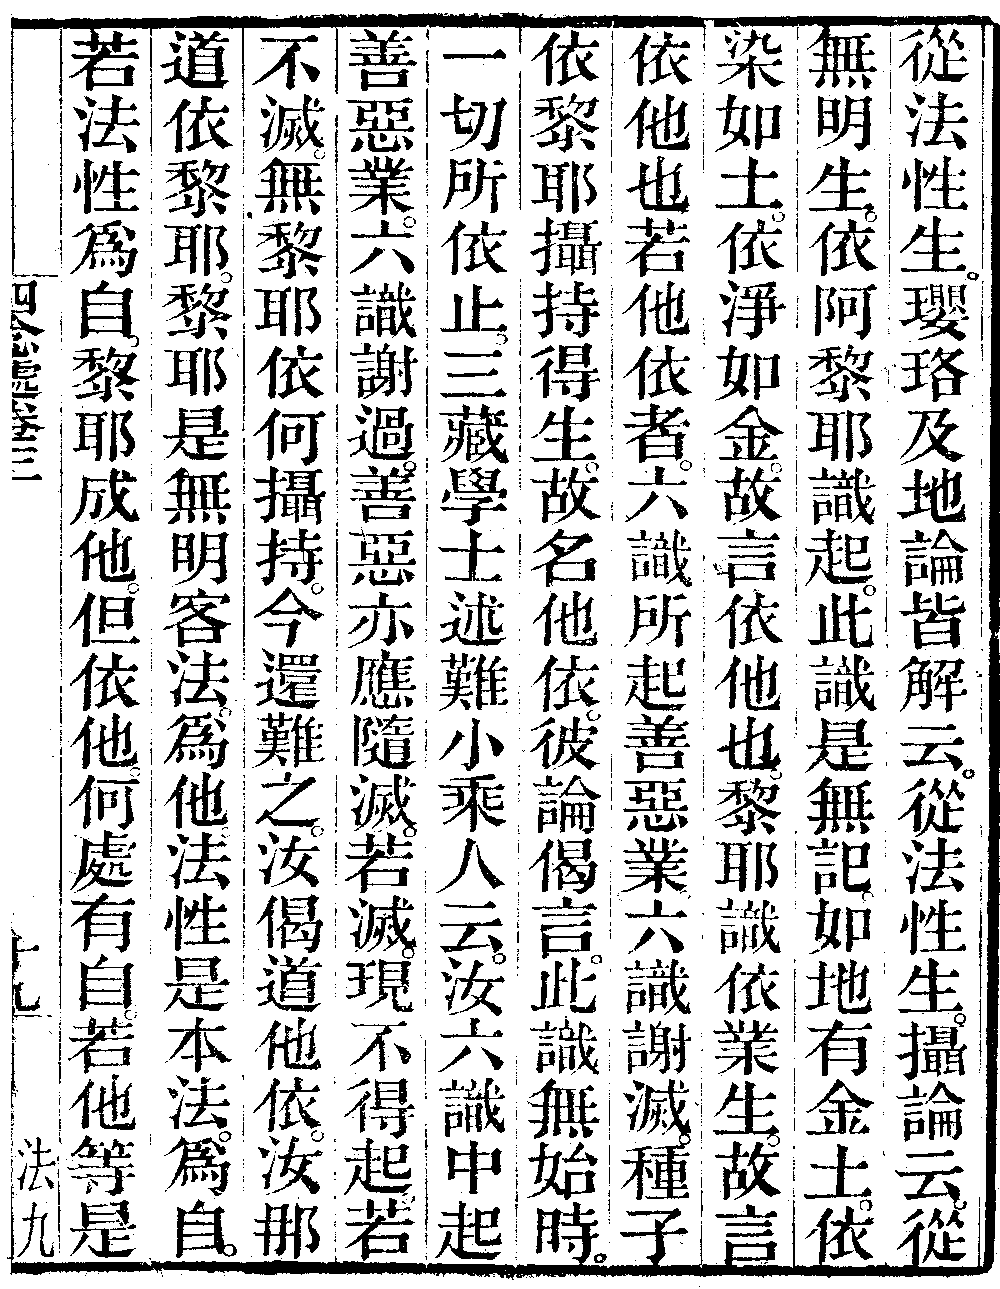 從法性生。瓔珞及地論皆解云。從法性生。攝論云。從
無明生。依阿黎耶識起。此識是無記。如地有金土。依
染如土。依淨如金。故言依他也。黎耶識依業生。故言
依他也若他依者。六識所起善惡業六識謝滅。種子
依黎耶攝持得生。故名他依。彼論偈言。此識無始時。
一切所依止。三藏學士述難小乘人云。汝六識中起
善惡業。六識謝過。善惡亦應隨滅。若滅。現不得起。若
不滅。無黎耶依何攝持。今還難之。汝偈道他依。汝那
道依黎耶。黎耶是無明客法。為他。法性是本法。為自。
若法性為自。黎耶成他。但依他。何處有自。若他等是
四念處卷三 十九 法九